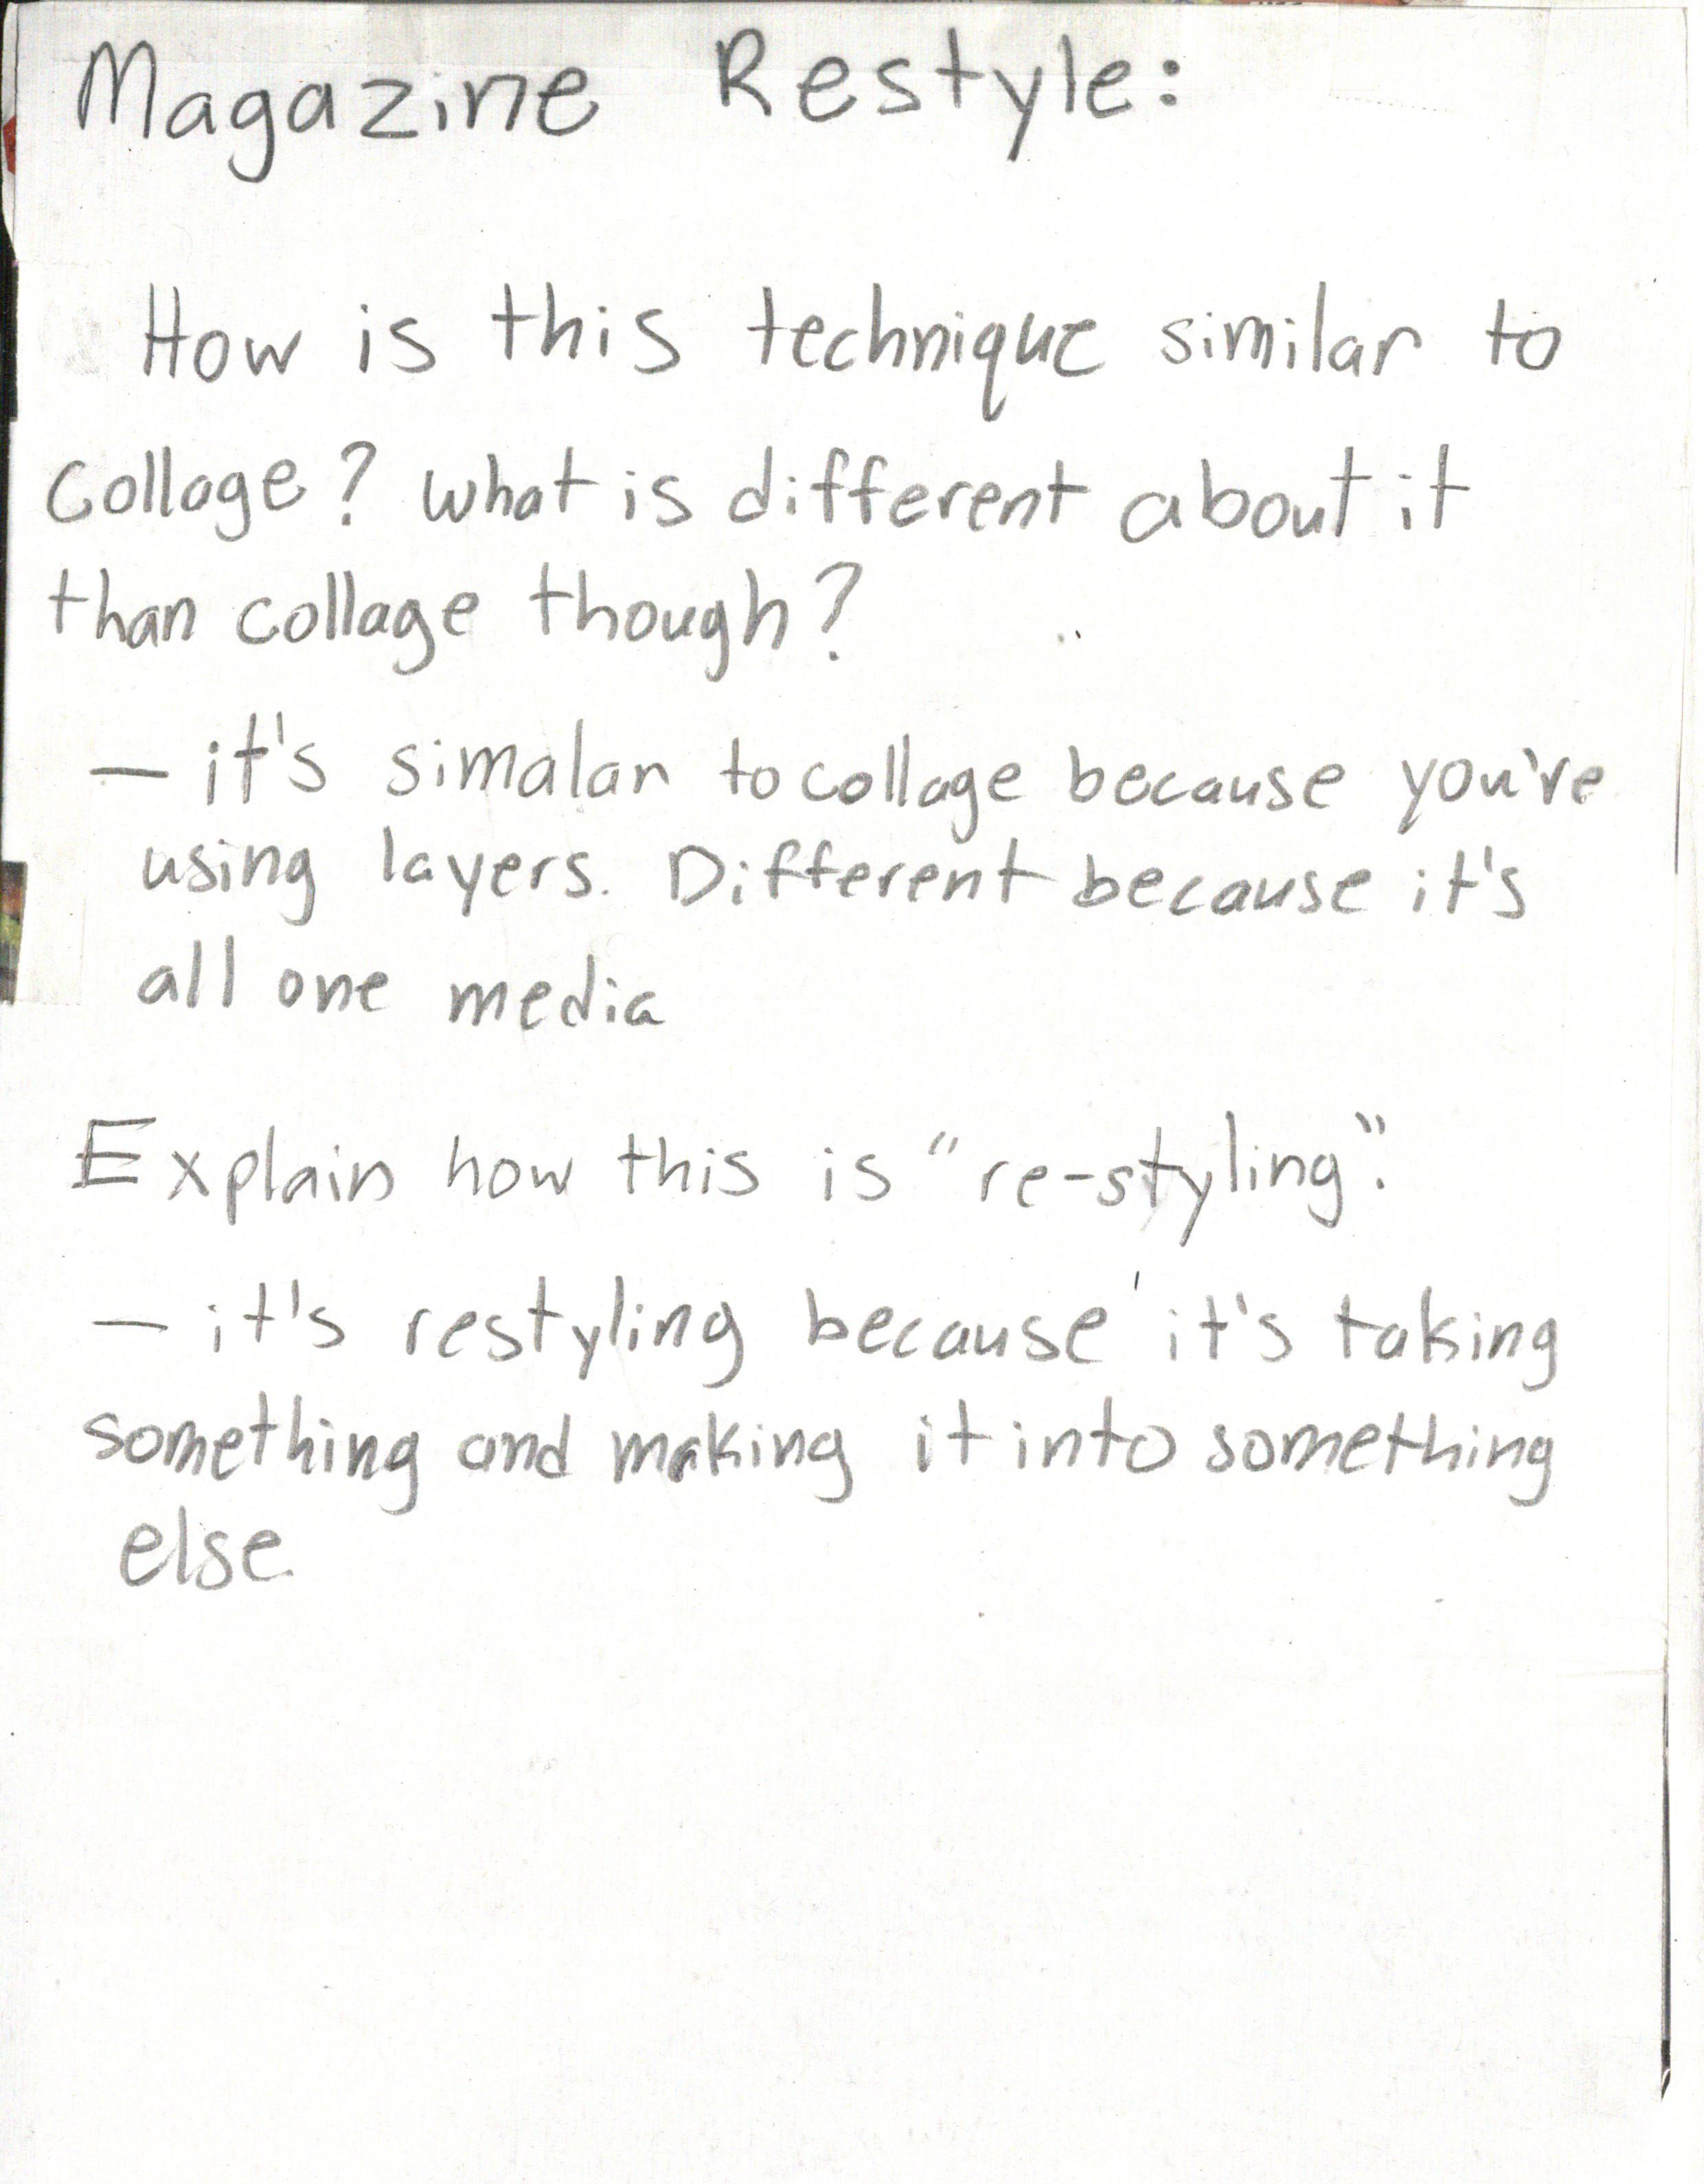 Magazine Restyle:
How is this technique similar to
collage? what is different about it
than collage though?
— it's simalar to collage because you're
using layers. Different because it's
all one media
Explain how this is "re-styling".
— it's restyling because it's taking
something and making it into something
else.